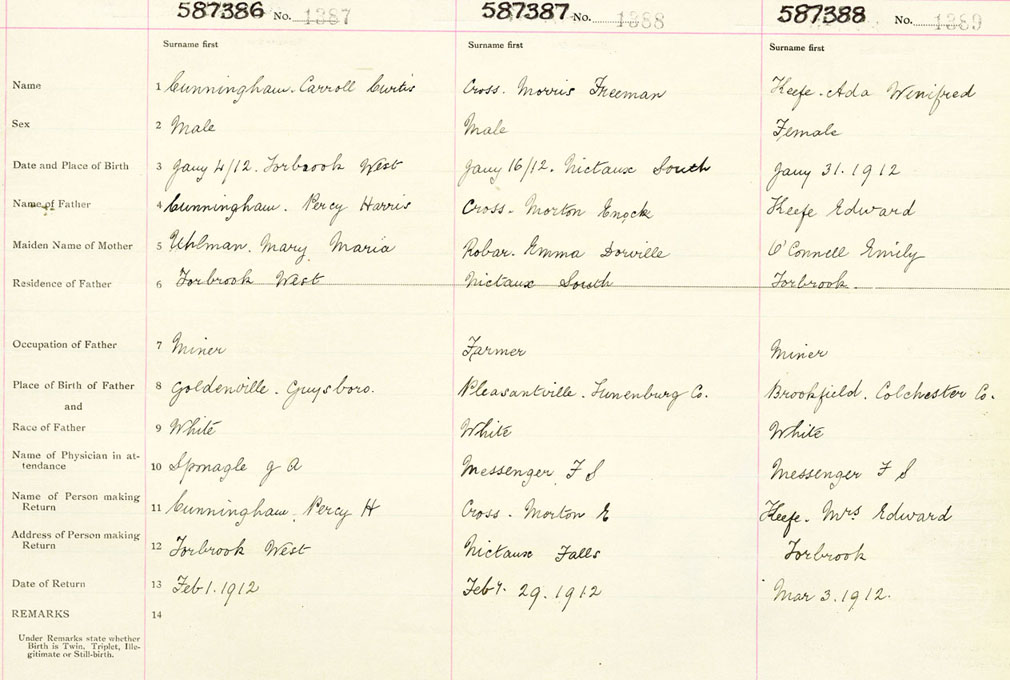 587386 No. 1387 587387 No. 1388 587388 No. 1389
Surname first Surname first Surname first
Name 1 Cunningham. Carroll Curtis Cross. Morris Freeman Keefe. Ada Winifred
Sex 2 Male Male Female
Date and Place of Birth 3 Jany 4/12. Torbrook West Jany 16/12. Nictaux South Jany 31. 1912
Name of Father 4 Cunningham. Percy Harris Cross. Morton Enock Keefe Edward
Maiden Name of Mother 5 Uhlman. Mary Maria Robar. Emma Dorville O'Connell Emily
Residence of Father 6 Torbrook West Nictaux South Torbrook.
Occupation of Father 7 Miner Farmer Miner
Place of Birth of Father 8 Goldenville. Guysboro. Pleasantville. Lunenburg Co. Brookfield. Colchester Co.
and
Race of Father 9 White White White
Name of Physician in at-
tendance 10 Sponagle J A Messenger F S Messenger F S
Name of Person making
Return 11 Cunningham. Percy H Cross. Morton E Keefe. Mrs Edward
Address of Person making
Return 12 Torbrook West Nictaux Falls Torbrook
Date of Return 13 Feb 1. 1912 Feby. 29. 1912 Mar 3. 1912.
REMARKS 14
Under Remarks state whether
Birth is Twin, Triplet, Ille-
gitimate or Still-birth.